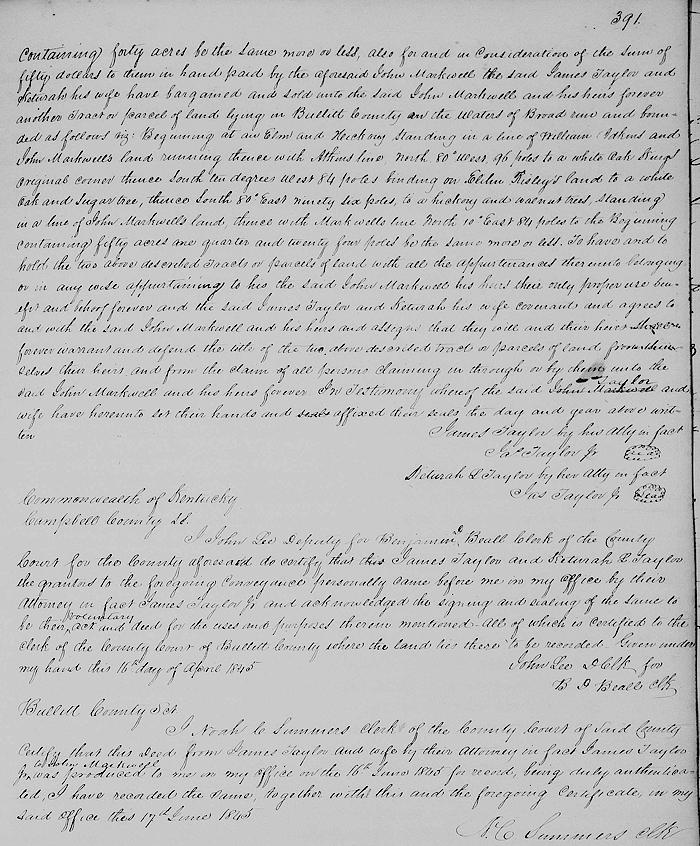 391.
Containing forty acres be the same more or less, also for and in Consideration of the sum of
fifty dollars to them in hand paid by the aforesaid John Markwell the said James Taylor and
Keturah his wife have bargained and sold unto the said John Markwell and his heirs forever
another Tract or parcel of land lying in Bullitt County on the Waters of Broad run and boun-
ded as follows viz: Beginning at an Elm and Hickory Standing in a line of William Adkins and
John Markwells land running thence with Atkins line North 80° West, 96 poles to a white Oak Kings
original corner thence South ten degrees West 84 poles binding on Elihu Risley's land to a white
Oak and Sugartree, thence South 80° East ninety six poles, to a hickory and walnut trees, standing
in a line of John Markwells land, thence with Markwells line North 10° East 84 poles to the Beginning
containing fifty acres one quarter and twenty four poles be the same more or less. To have and to
hold the two above described Tracts or parcels of land with all the appurtenances thereunto belonging
or in any wise appurtaining to his the said John Markwell his heirs their only proper use ben-
efit and behoof forever and the said James Taylor and Keturah his wife covenant and agrees to
and with the said John Markwell and his heirs and assigns that they will and their heirs
forever warrant and defend the title of the two above described tract or parcels of land from them-
selves their heirs and from the claim of all persons claiming in through or by them unto the
said John Markwell and his heirs forever In Testimony whereof the said John Markwell Taylor and
wife have hereunto set their hands and seals affixed their seals the day and year above writ-
ten
James Taylor by his Atty in fact
Jas Taylor Jr Seal
Keturah L Taylor by her Atty in fact
Jas Taylor Jr Seal
Commonwealth of Kentucky
Campbell County SS.
I John Lee Deputy for Benjamin D. Beall Clerk of the County
Court for the County aforesaid do certify that this James Taylor and Keturah L Taylor
the grantors to the foregoing Conveyance personally came before me in my office by their
Attorney in fact James Taylor Jr and acknowledged the signing and sealing of the same to
be their voluntary act and deed for the uses and purposes therein mentioned. All of which is certified to the
Clerk of the County Court of Bullitt County where the land lies there to be recorded. Given under
my hand this 16th day of April 1845
John Lee D Clk for
B D Beall Clk
Bullitt County Sct
I Noah C Summers Clerk of the County Court of Said County
Certify that this Deed from James Taylor and wife by their Attorney in fact James Taylor
Jr. to John Markwell was produced to me in my office on the 16th June 1845 for record, being duly authentica-
ted, I have recorded the same, together with this and the foregoing Certificate, in my
said office this 17th June 1845
N. C. Summers Clk